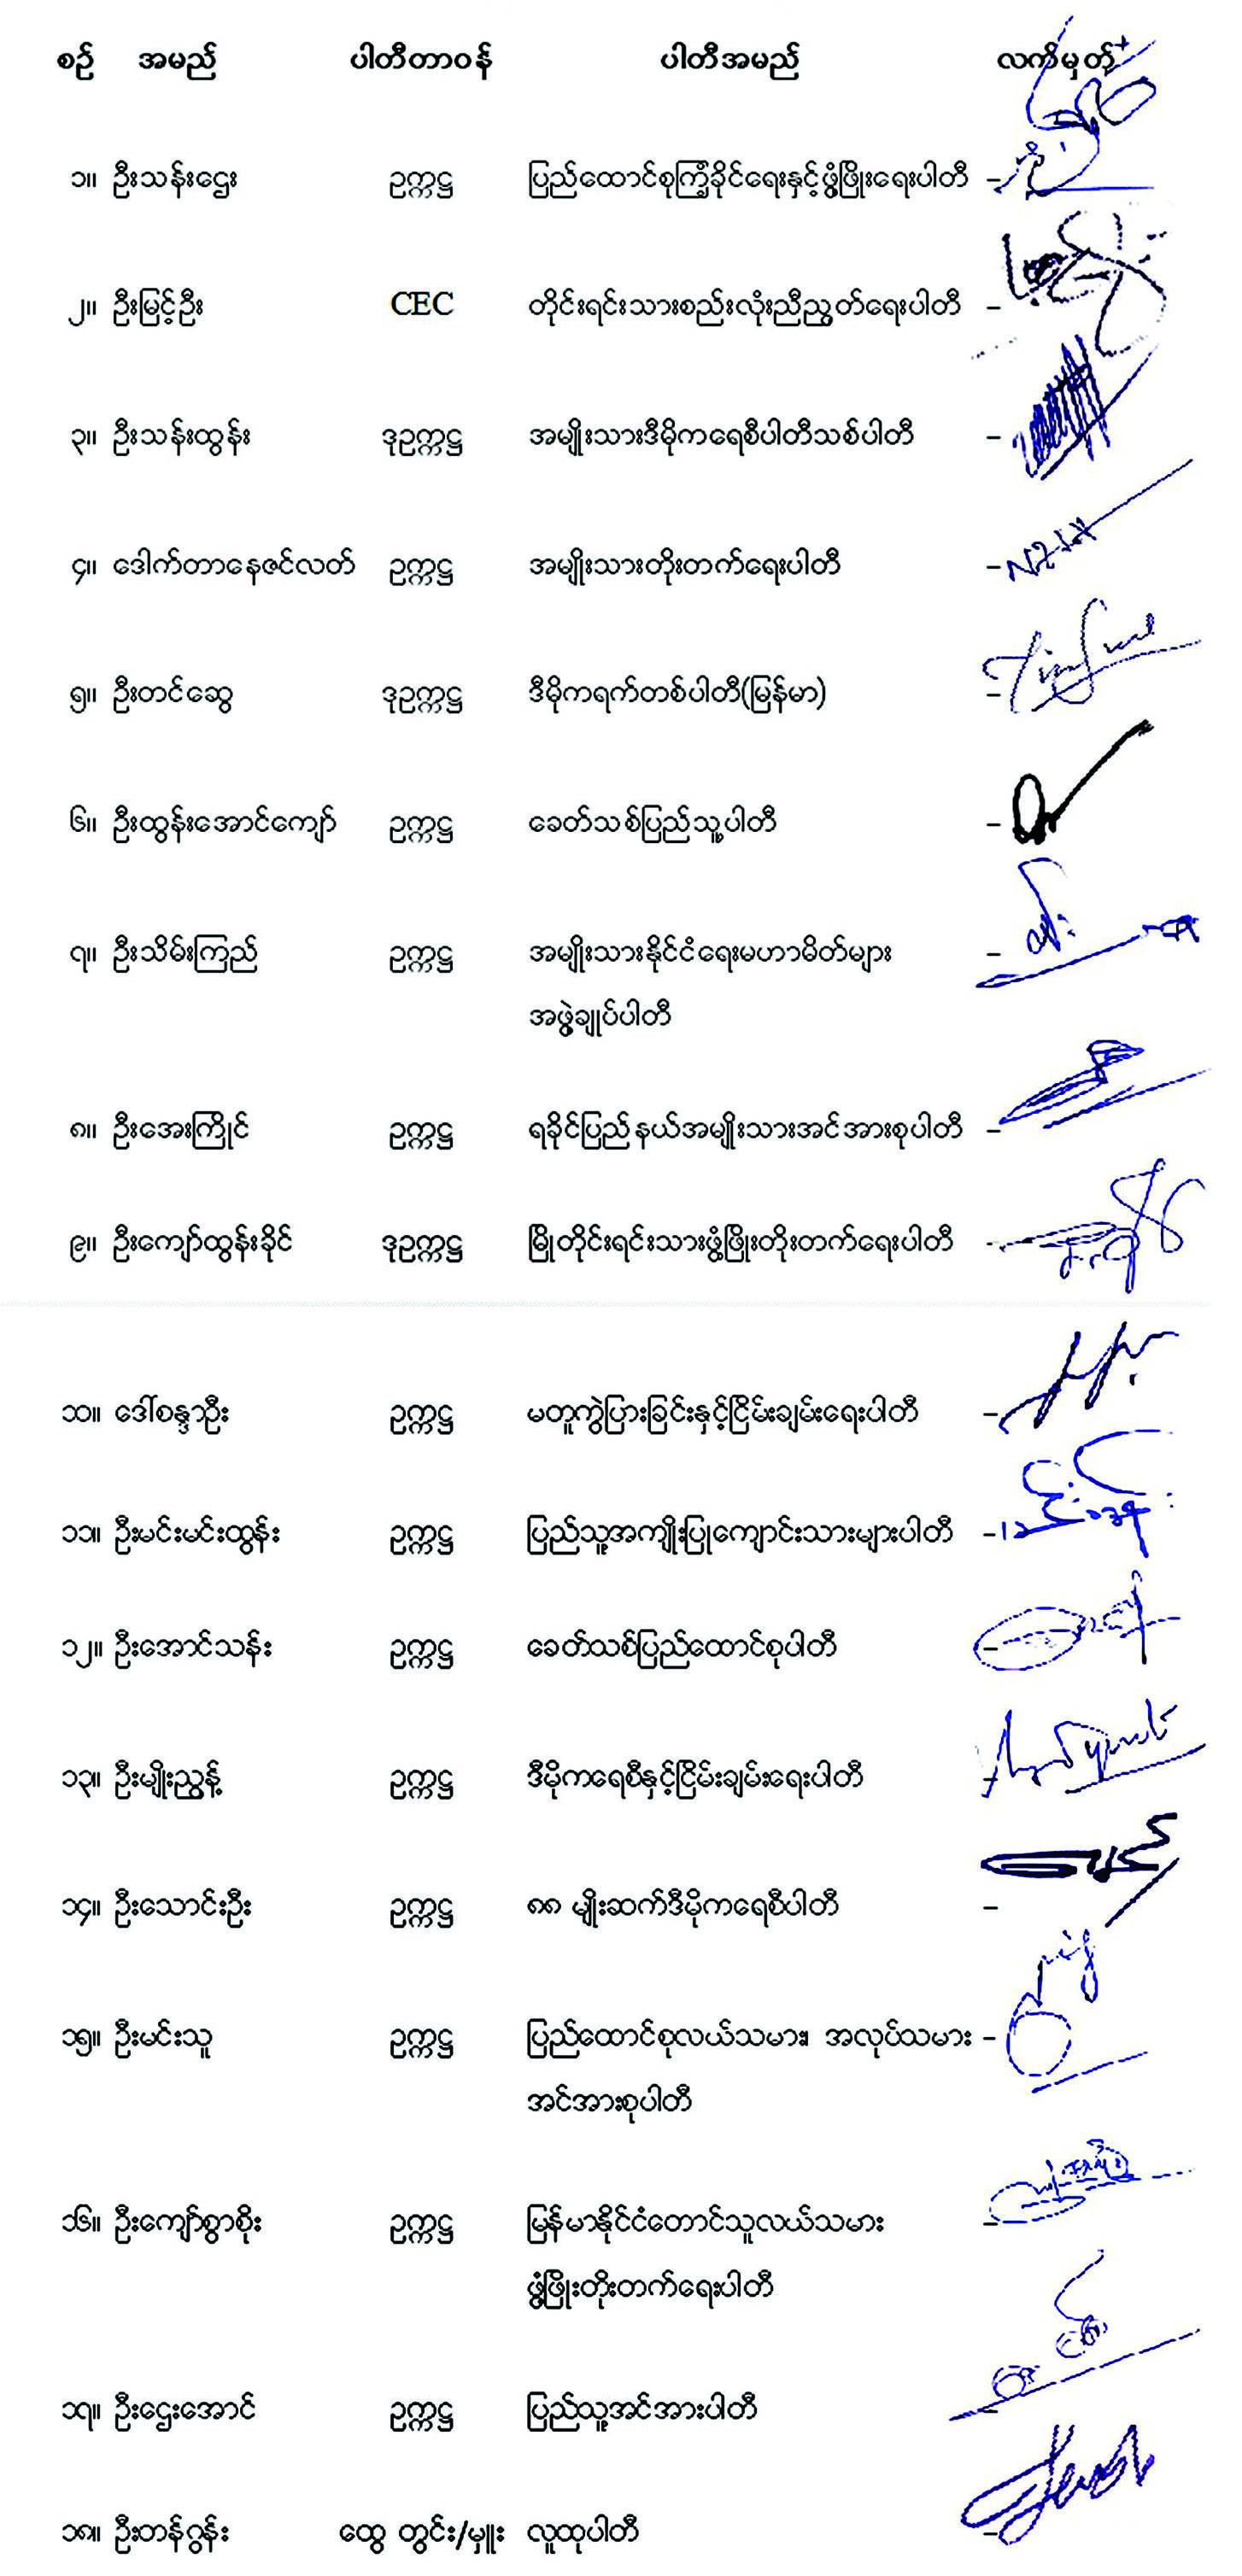 စဉ် အမည် ပါတီတာဝန် ပါတီအမည် လက်မှတ်
၁။ ဦးသန်းဌေး ဥက္ကဋ္ဌ ပြည်ထောင်စုကြံ့ခိုင်ရေးနှင့်ဖွံ့ဖြိုးရေးပါတီ –
၂။ ဦးမြင့်ဦး CEC တိုင်းရင်းသားစည်းလုံးညီညွတ်ရေးပါတီ –
၃။ ဦးသန်းထွန်း ဒုဥက္ကဋ္ဌ အမျိုးသားဒီမိုကရေစီပါတီသစ်ပါတီ –
၄။ ဒေါက်တာနေဇင်လတ် ဥက္ကဋ္ဌ အမျိုးသားတိုးတက်ရေးပါတီ –
၅။ ဦးတင်ဆွေ ဒုဥက္ကဋ္ဌ ဒီမိုကရက်တစ်ပါတီ(မြန်မာ) –
၆။ ဦးထွန်းအောင်ကျော် ဥက္ကဋ္ဌ ခေတ်သစ်ပြည်သူ့ပါတီ –
၇။ ဦးသိမ်းကြည် ဥက္ကဋ္ဌ အမျိုးသားနိုင်ငံရေးမဟာမိတ်များ –
အဖွဲ့ချုပ်ပါတီ
၈။ ဦးအေးကြိုင် ဥက္ကဋ္ဌ ရခိုင်ပြည်နယ်အမျိုးသားအင်အားစုပါတီ –
၉။ ဦးကျော်ထွန်းခိုင် ဒုဥက္ကဋ္ဌ မြိုတိုင်းရင်းသားဖွံ့ဖြိုးတိုးတက်ရေးပါတီ –
၁၀။ ဒေါ်စန္ဒာဦး ဥက္ကဋ္ဌ မတူကွဲပြားခြင်းနှင့်ငြိမ်းချမ်းရေးပါတီ –
၁၁။ ဦးမင်းမင်းထွန်း ဥက္ကဋ္ဌ ပြည်သူ့အကျိုးပြုကျောင်းသားများပါတီ –
၁၂။ ဦးအောင်သန်း ဥက္ကဋ္ဌ ခေတ်သစ်ပြည်ထောင်စုပါတီ –
၁၃။ ဦးမျိုးညွန့် ဥက္ကဋ္ဌ ဒီမိုကရေစီနှင့်ငြိမ်းချမ်းရေးပါတီ –
၁၄။ ဦးသောင်းဦး ဥက္ကဋ္ဌ ၈၈ မျိုးဆက်ဒီမိုကရေစီပါတီ –
၁၅။ ဦးမင်းသူ ဥက္ကဋ္ဌ ပြည်ထောင်စုလယ်သမား၊ အလုပ်သမား –
အင်အားစုပါတီ
၁၆။ ဦးကျော်စွာစိုး ဥက္ကဋ္ဌ မြန်မာနိုင်ငံတောင်သူလယ်သမား –
ဖွံ့ဖြိုးတိုးတက်ရေးပါတီ
၁၇။ ဦးဌေးအောင် ဥက္ကဋ္ဌ ပြည်သူ့အင်အားပါတီ –
၁၈။ ဦးတန်ဂွန်း ထွေ တွင်း/မှူး လူထုပါတီ –